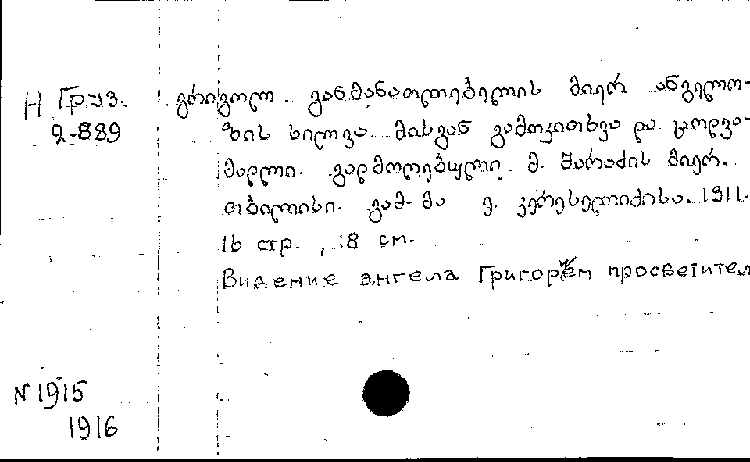 Н Груз. გრიგოლ განმანათლებელის მიერ ანგელო-
2-889 ზის ხილვა მისგან გამოკითხვა და ცოდვა-
მადლი. გადმოღებული მ. შარაძის მიერ.
თბილისი. გამ-მა ე. კერესელიძისა. 1911.
16 стр., 18 см.
Видение ангела Григорем просветител
N 1915
1916